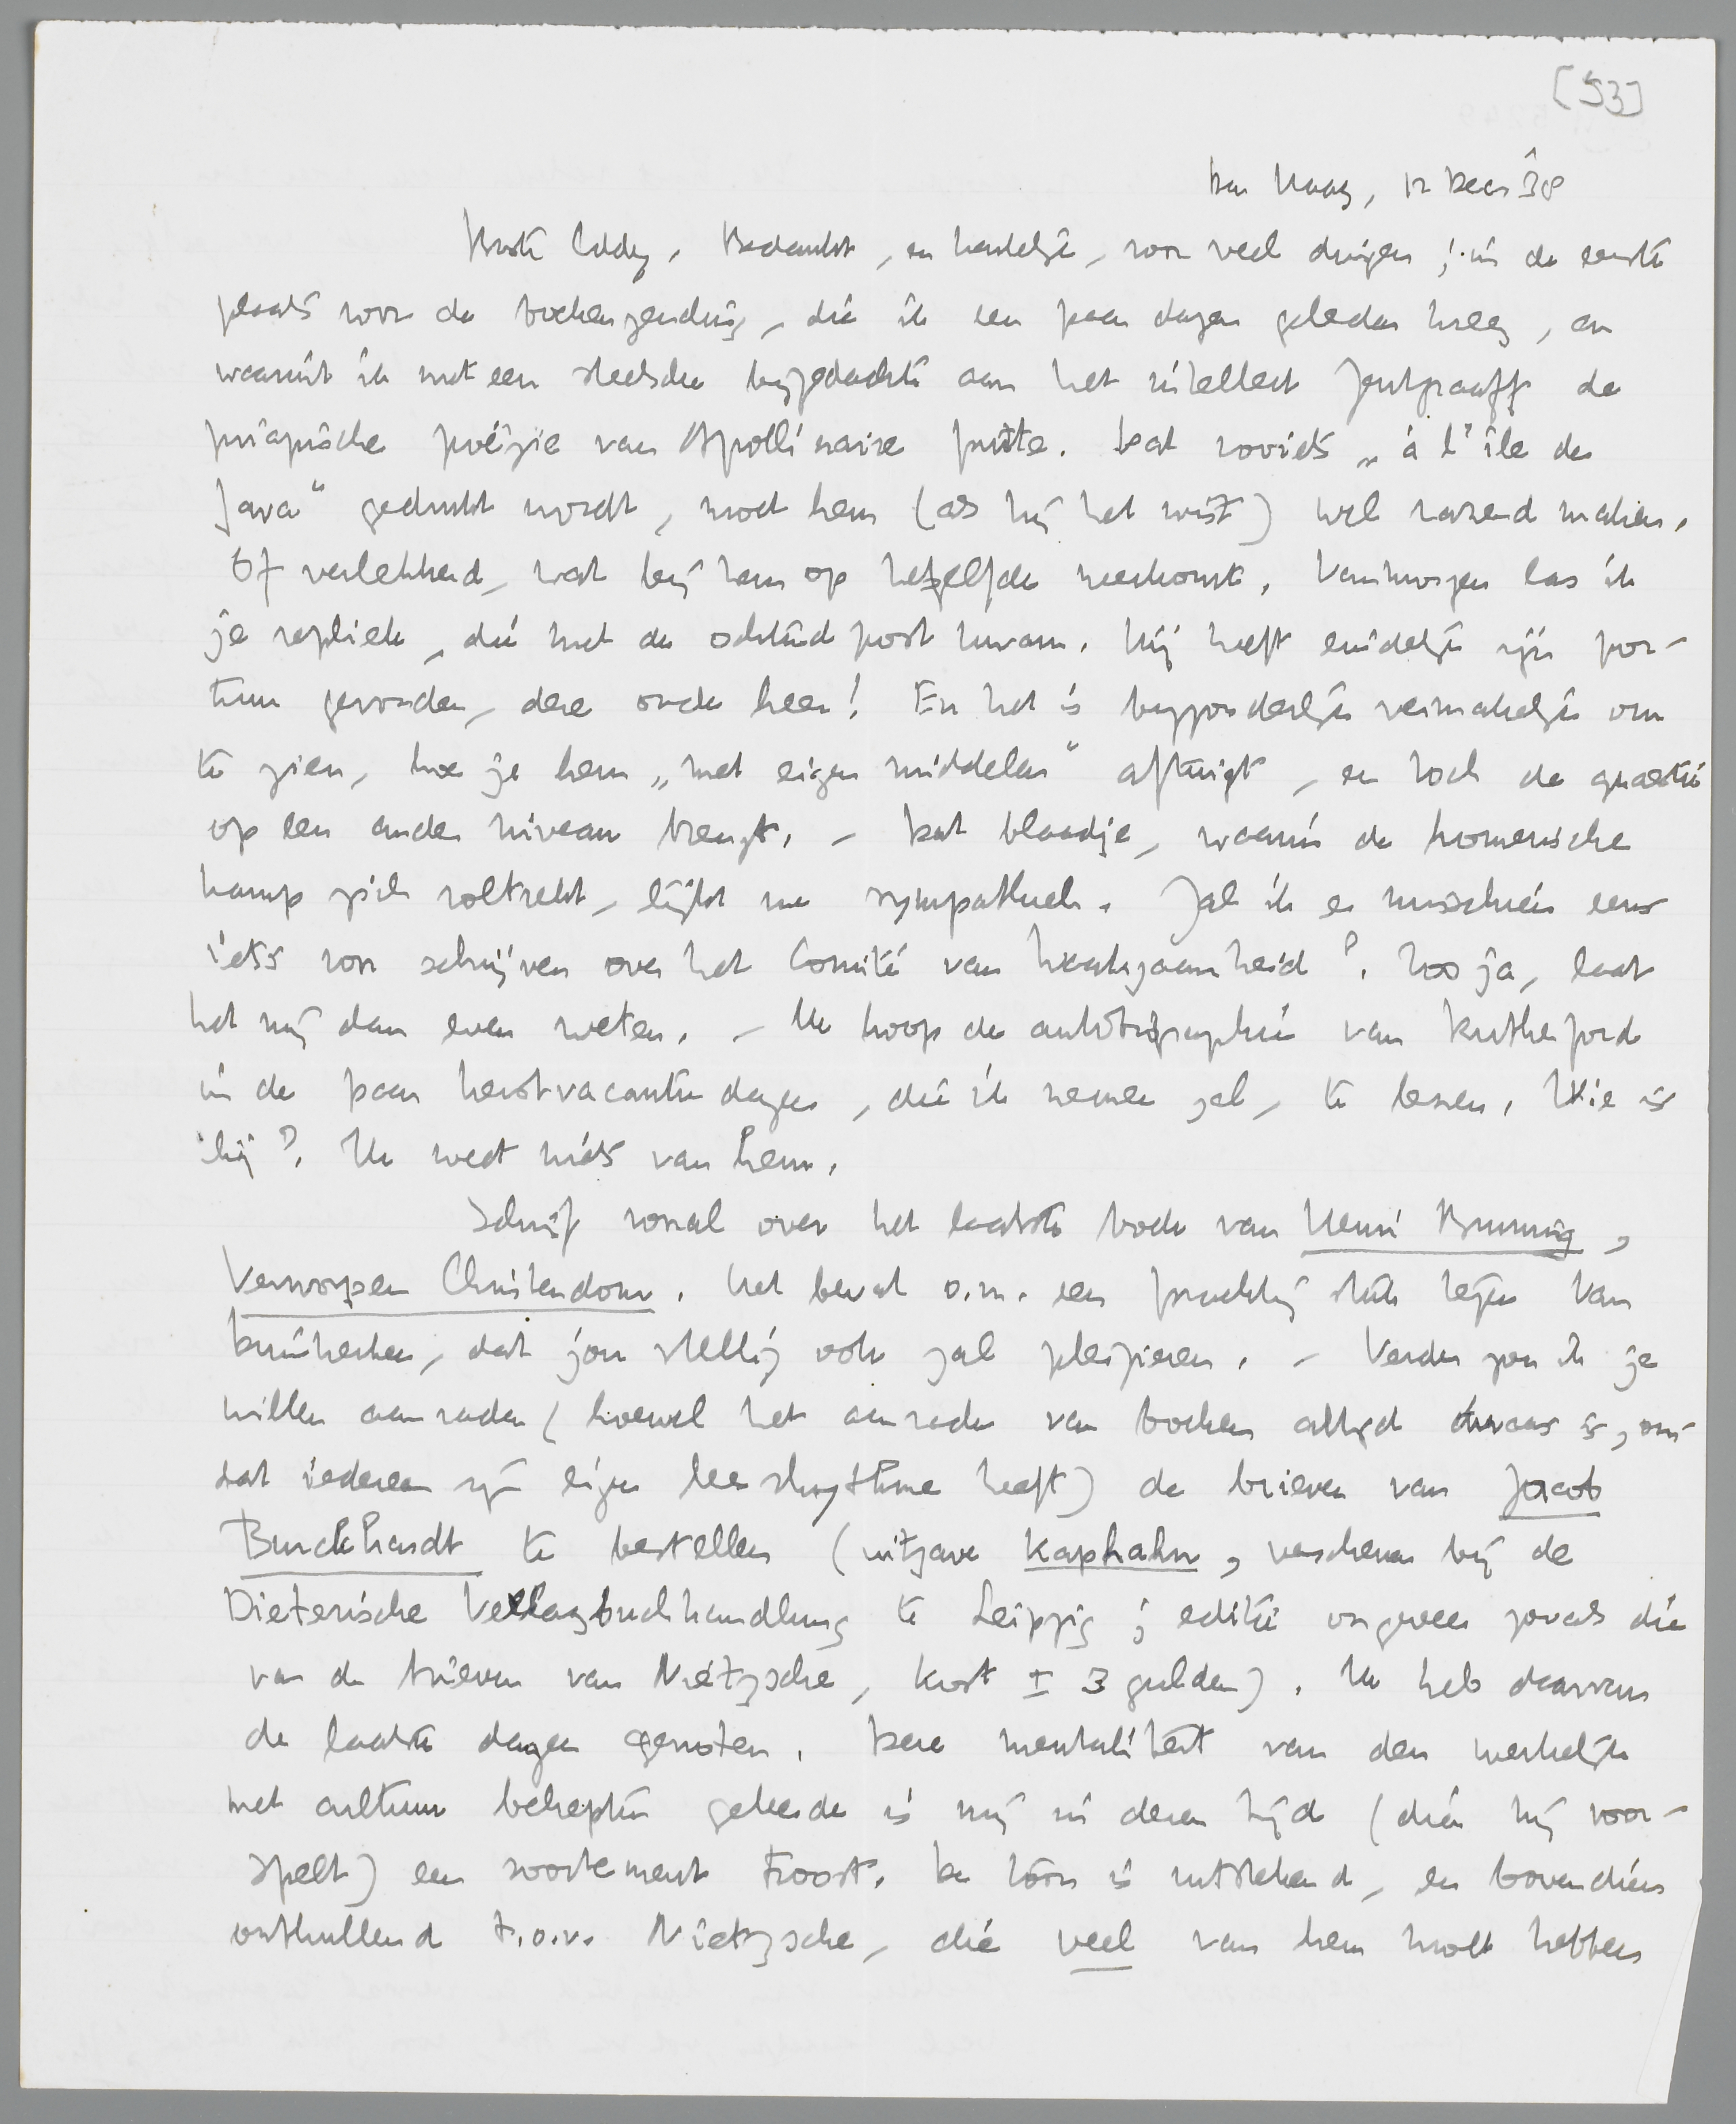 [53]
Den Haag, 12 Dec. 38
Beste Eddy, Bedankt, en hartelijk, voor veel dingen; in de eerste
plaats voor de boekenzending, die ik een paar dagen geleden kreeg, en
waaruit ik met een steelsche bijgedachte aan het intellect Zentgraaff de
priapische poëzie van Apollinaire putte. Dat zooiets „à l'île de
Java" gedrukt wordt, moet hem (als hij het wist) wel razend maken.
Of verlekkerd, wat bij hem op hetzelfde neerkomt. Vanmorgen las ik
je repliek, die met de ochtendpost kwam. Hij heeft eindelijk zijn por-
tuur gevonden, deze oude heer! En het is bijzonderlijk vermakelijk om
te zien, hoe je hem „met eigen middelen" aftuigt, en toch de quaestie
op een ander niveau brengt. – Dat blaadje, waarin de homerische
kamp zich voltrekt, lijkt me sympathiek. Zal ik er misschien eens
iets voor schrijven over het Comité van Waakzaamheid? Zoo ja, laat
het mij dan even weten. – Ik hoop de autobiographie van Rutherford
in de paar kerstvacantiedagen, die ik nemen zal, te lezen. Wie is
hij? Ik weet niets van hem.
Schrijf vooral over het laatste boek van Henri Bruning,
Verworpen Christendom. Het bevat o.m. een prachtig stuk tegen Van
Duinkerken, dat jou stellig ook zal plezieren. – Verder zou ik je
willen aanraden (hoewel het aanraden van boeken altijd dwaas is, om-
dat iedereen zijn eigen leesrhythme heeft) de brieven van Jacob
Burckhardt te bestellen (uitgave Kaphahn, verschenen bij de
Dieterische Verlagbuchhandlung te Leipzig; editie ongeveer zooals die
van de brieven van Nietzsche, kost ± 3 gulden). Ik heb daarvan
de laatste dagen genoten. Deze mentaliteit van den werkelijk
met cultuur behepten geleerde is mij in dezen tijd (dien hij voor-
spelt) een soortement troost. De toon is uitstekend, en bovendien
onthullend t.o.v. Nietzsche, die veel van hem moet hebben